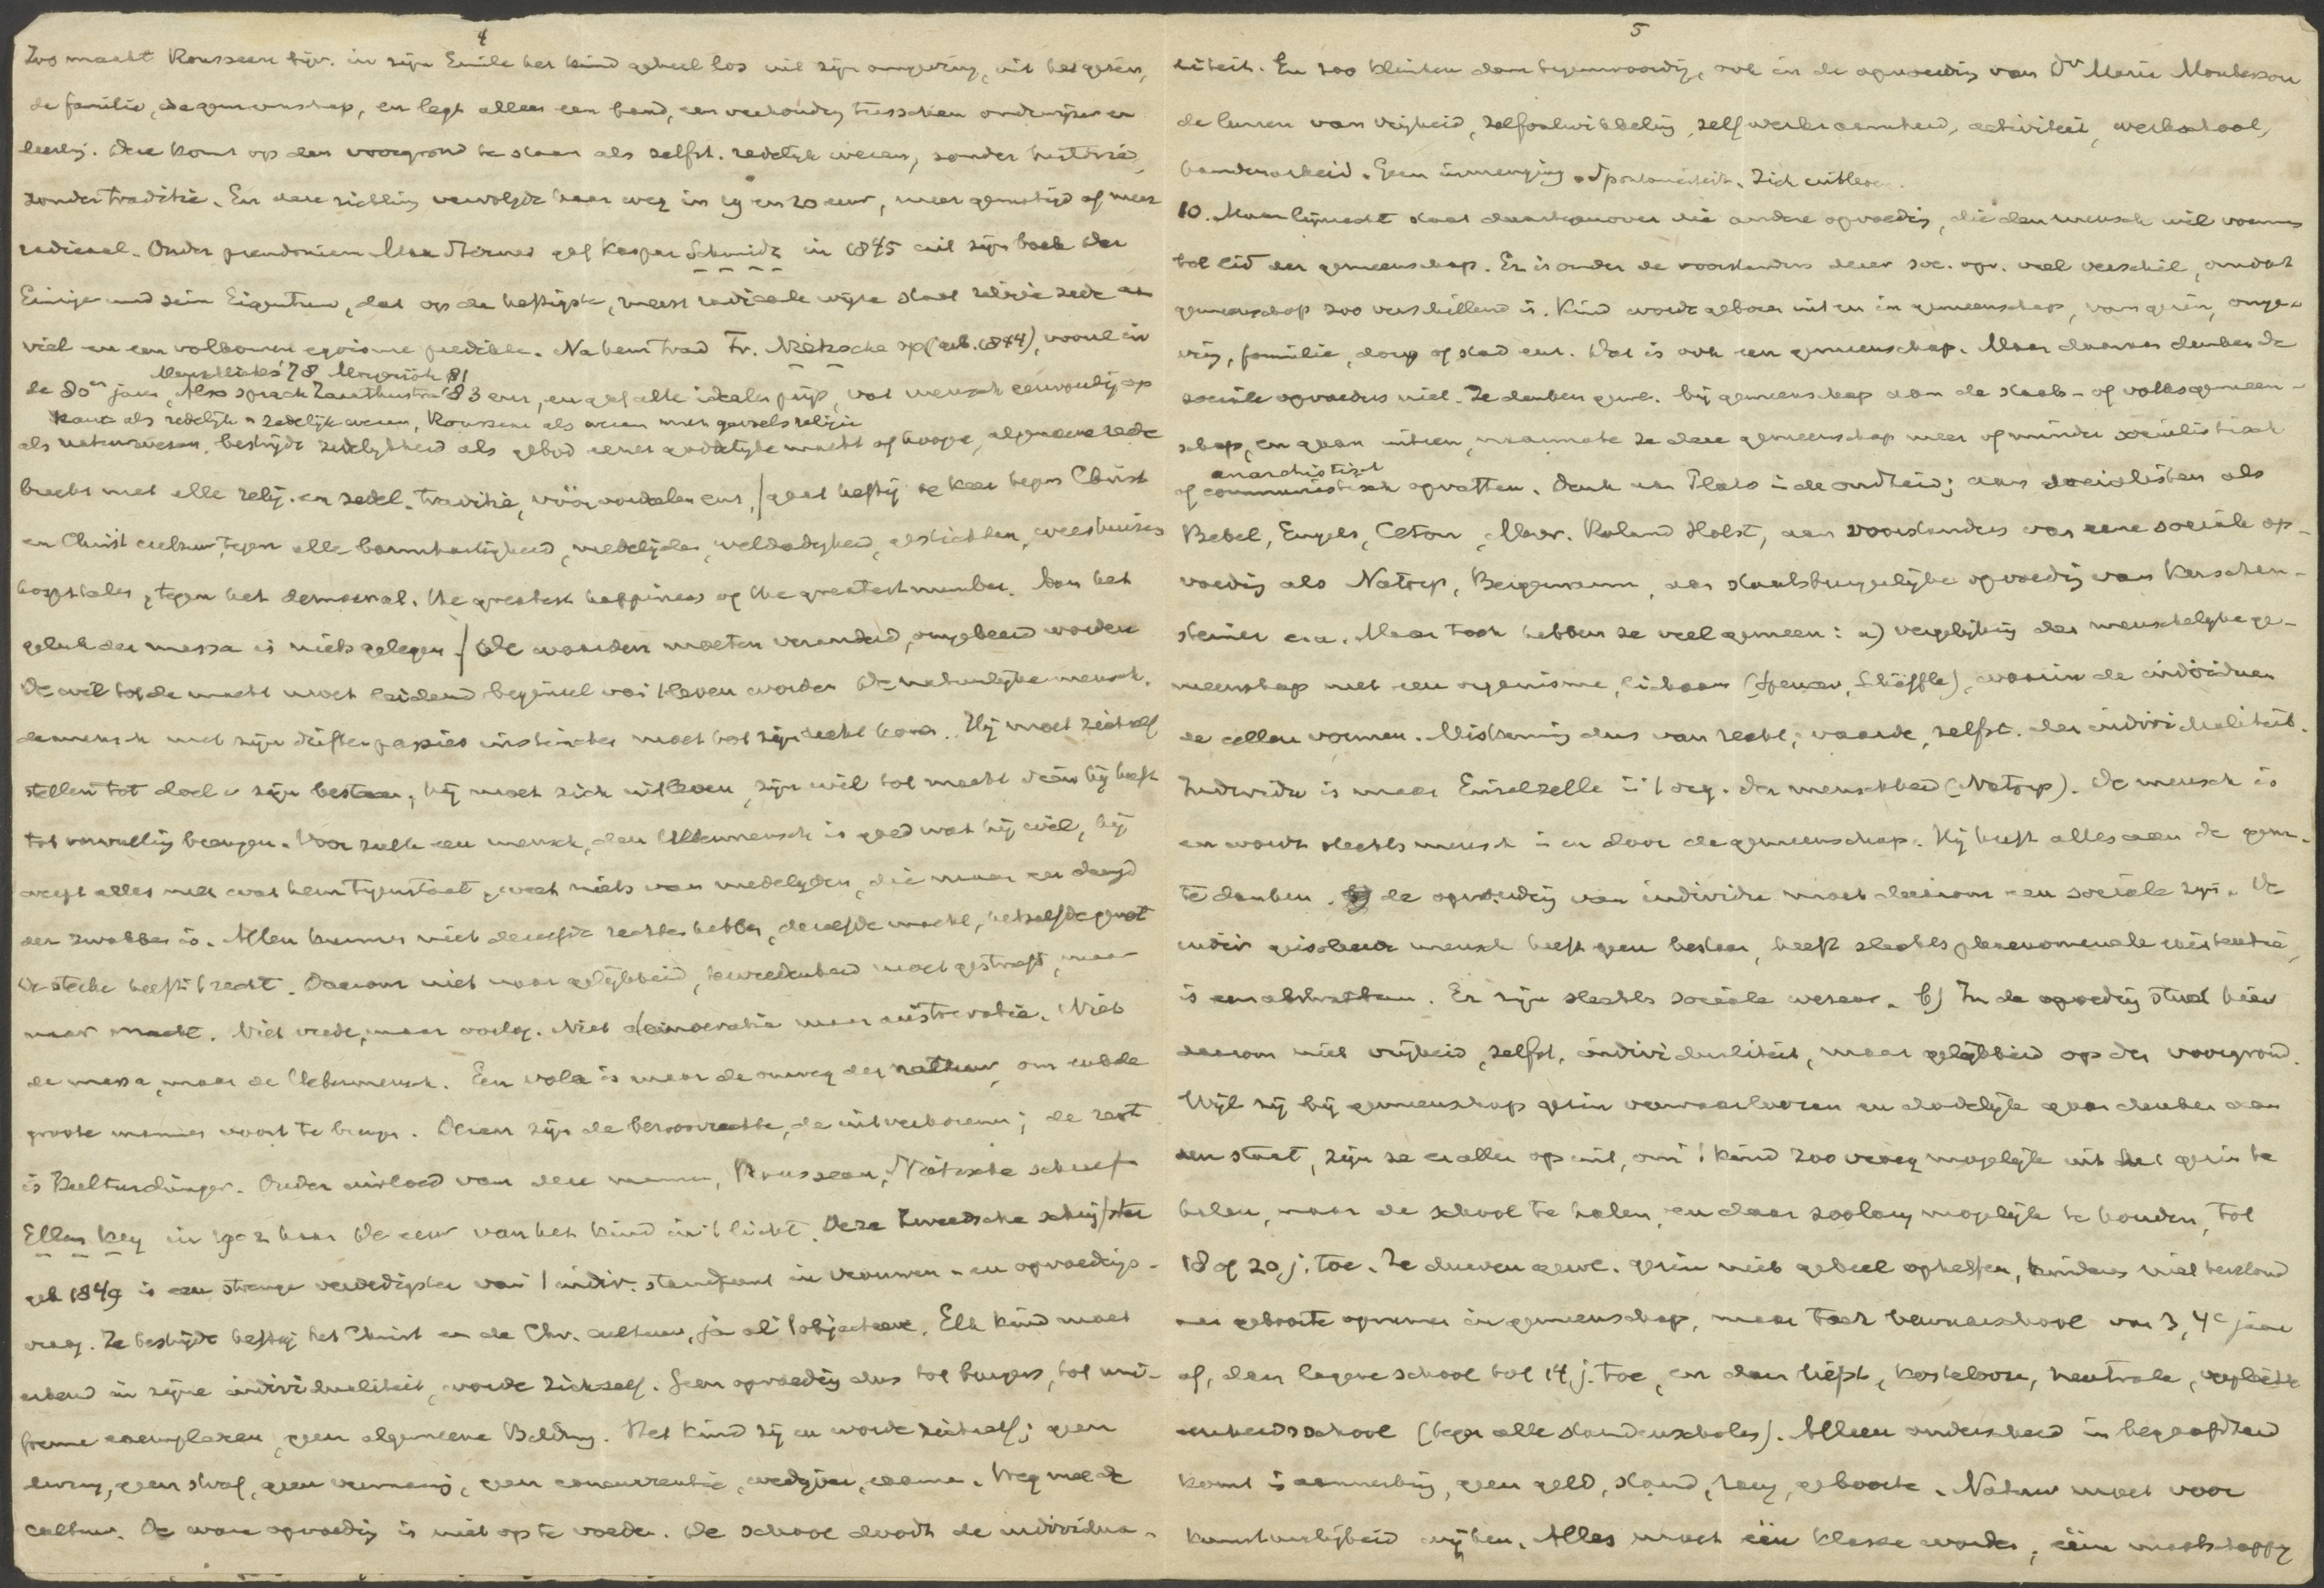 4
Zoo maakt Rousseau bijv. in zijn Emile het kind geheel los uit zijn omgeving, uit het gezin,
de familie, de gemeenschap, en legt alleen een band, een verhouding tusschen onderwijzer en
leerling. Deze komt op den voorgrond te staan als zelfst. redelijk wezen, zonder historie,
zonder traditie. En deze richting vervolgde haar weg in 19 en 20 eeuw, meer gematigd of meer
radicaal. Onder pseudoniem Max Stirner gaf Kaspar Schmidt in 1845 uit zijn boek Der
Einzige und sein Eigentum, dat op de heftigste, meest radicale wijze staat religie zede aan
viel en een volkomen egoisme predikte. Na hem trad Fr. Nietzsche op (geb. 1844), vooral in
Menschliches 78 Morgenröte 81
de 80er jaren, Also sprach Zarathustra 83 enz., en gaf alle idealen prijs, vat mensch eenvoudig op
Kant als redelijk en zedelijk wezen, Rousseau als wezen met gevoelsreligie
als natuurwezen, bestrijdt zedelijkheid als gebod eener goddelijke macht of hooge, algemeene rede
breekt met alle relig. en zedel. traditie, vooroordeelen enz., / gaat heftig te keer tegen Christ
en Christ cultuur, tegen alle barmhartigheid, medelijden, weldadigheid, gestichten, weeshuizen
hospitalen, tegen het demoraal. the greatest happiness of the greatest number. Aan het
geluk der massa is niets gelegen. / De waarden moeten veranderd, omgekeerd worden
De wil tot de macht moet leidend beginsel van 't leven worden De natuurlijke mensch.
de mensch met zijn driften passies instincten moet tot zijn recht komen. Hij moet zichzelf
stellen tot doel v zijn bestaan, hij moet zich uitleven, zijn wil tot macht dien hij heeft
tot vervulling brengen. Voor zulk een mensch, den Uebermensch is goed wat hij wil, hij
werpt alles neer wat hem tegenstaat, weet niets van medelijden, die maar een deugd
der zwakken is. Allen kunnen niet dezelfde rechten hebben, dezelfde macht, hetzelfde genot
De sterke heeft 't recht. Daarom niet naar gelijkheid, tevredenheid moet gestreefd, maar
naar macht. Niet vrede, maar oorlog. Niet democratie maar aristocratie. Niet
de massa, maar de Uebermensch. Een volk is maar de omweg der natuur, om enkele
groote mannen voort te brengen. Dezen zijn de bevoorrechte, de uitverkorenen; de rest
is Kulturdünger. Onder invloed van deze mannen, Rousseau, Nietzsche schreef
Ellen Key in 1902 haar De eeuw van het kind in 't licht. Deze Zweedsche schrijfster
geb 1849 is een strenge verdedigster van 't indiv. standpunt in vrouwen- en opvoedings-
vraag. Ze bestrijdt heftig het Christ en de Chr. cultuur, ja al 't objectieve. Elk kind moet
erkend in zijne individualiteit, worde zichzelf. Geen opvoeding dus tot burgers, tot uni-
forme exemplaren, geen algemeene Bildung. Het kind zij en worde zichzelf; geen
dwang, geen straf, geen vermaning, geen concurrentie, wedijver, examen. Weg met de
cultuur. De ware opvoeding is niet op te voeden. De school doodt de individua-
5
liteit. En zoo klinken dan tegenwoordig, ook in de opvoeding van Dr Maria Montessori
de leuzen van vrijheid, zelfontwikkeling, zelfwerkzaamheid, activiteit, werkschool,
handenarbeid. Geen inmenging. Spontaneiteit. Zich uitleven.
10. Maar lijnrecht staat daartegenover die andere opvoeding, die den mensch wil vormen
tot lid der gemeenschap. Er is onder de voorstanders dezer soc. opv. veel verschil, omdat
gemeenschap zoo verschillend is. Kind wordt geboren uit en in gemeenschap, van gezin, omge-
ving, familie, dorp of stad enz. Dat is ook een gemeenschap. Maar daaraan denken de
sociale opvoeders niet. Ze denken gewl. bij gemeenschap aan de staats- of volksgemeen-
schap, en gaan uiteen, naarmate ze deze gemeenschap meer of minder socialistisch
anarchistisch
of communistisch opvatten. Denk aan Plato in de oudheid; aan socialisten als
Bebel, Engels, Ceton, Mevr. Roland Holst, aan voorstanders van eene sociale op-
voeding als Natorp, Bergemann, aan staatsburgerlijke opvoeding van Kerschen-
steiner e.a. Maar toch hebben ze veel gemeen: a) vergelijking der menschelijke ge-
meenschap met een organisme, lichaam (Spencer, Schäffle), waarin de individuen
de cellen vormen. Miskenning dus van recht, waarde, zelfst. der individualiteit.
Individu is maar Einzelzelle in 't org. der menschheid (Natorp). De mensch is
en wordt slechts mensch in en door de gemeenschap. Hij heeft alles aan de gem.
te danken. de opvoeding van individu moet daarom een sociale zijn. De
indiv geisoleerde mensch heeft geen bestaan, heeft slechts phenomenale existentie,
is een abstractum. Er zijn slechts sociale wezens. b) In de opvoeding staat hier
daarom niet vrijheid, zelfst. individualiteit, maar gelijkheid op den voorgrond.
Wijl zij bij gemeenschap gezin verwaarloozen en dadelijk gaan denken aan
den staat, zijn ze er allen op uit, om 't kind zoo vroeg mogelijk uit het gezin te
halen, naar de school te halen, en daar zoolang mogelijk te houden, tot
18 of 20 j. toe. Ze durven gewl. gezin niet geheel opheffen, kinders niet terstond
na geboorte opnemen in gemeenschap, maar toch bewaarschool van 3, 4e jaar
af, dan lagere school tot 14 j. toe, en dan liefst, kostelooze, neutrale, verplichte
eenheidsschool (tegen alle standenscholen). Alleen onderscheid in begaafdheid
komt in aanmerking, geen geld, stand, rang, geboorte. Natuur moet voor
kunstmatigheid wijken. Alles moet één klasse worden, één maatschappij